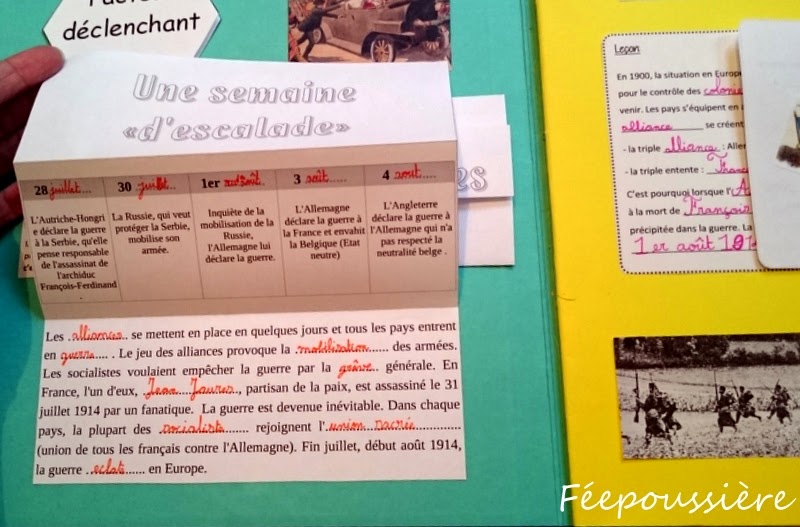 déclenchant
Une semaine
«d'escalade»
28 juillet.... 30 juillet.. 1er août. 3 août..... 4 août....
L'Autriche-Hongri
e déclare la guerre
à la Serbie, qu'elle
pense responsable
de l'assassinat de
l'archiduc
François-Ferdinand
La Russie, qui veut
protéger la Serbie,
mobilise son
armée.
Inquiète de la
mobilisation de la
Russie,
l'Allemagne lui
déclare la guerre.
L'Allemagne
déclare la guerre à
la France et envahit
la Belgique (Etat
neutre)
L'Angleterre
déclare la guerre à
l'Allemagne qui n'a
pas respecté la
neutralité belge .
es
Les .alliances.. se mettent en place en quelques jours et tous les pays entrent
en guerre..... . Le jeu des alliances provoque la .mobilisation...... des armées.
Les socialistes voulaient empêcher la guerre par la grève.. générale. En
France, l'un d'eux, .Jean....Jaures.., partisan de la paix, est assassiné le 31
juillet 1914 par un fanatique. La guerre est devenue inévitable. Dans chaque
pays, la plupart des .socialists....... rejoignent l'.union...sacrée.............
(union de tous les français contre l'Allemagne). Fin juillet, début août 1914,
la guerre ..eclate...... en Europe.
Leçon
En 1900, la situation en Europe
pour le contrôle des colonie
venir. Les pays s'équipent en
alliance se créent
- la triple alliance : Alle
- la triple entente : France
C'est pourquoi lorsque l'A
à la mort de François
précipitée dans la guerre. La
1er août 191
Féepoussière